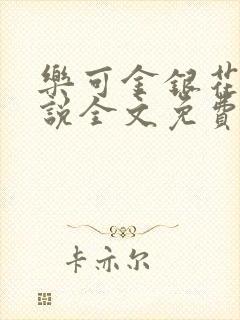 樂可金銀花
説全文免費
卡亦尔